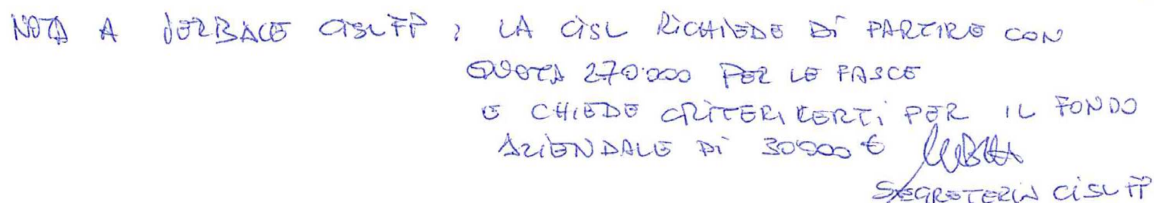 NOTA A VERBALE CISL FP : LA CISL RICHIEDE DI PARTIRE CON
QUOTA 270.000 PER LE FASCE
E CHIEDE CRITERI CERTI PER IL FONDO
AZIENDALE DI 30.000 €
SEGRETERIA CISL FP